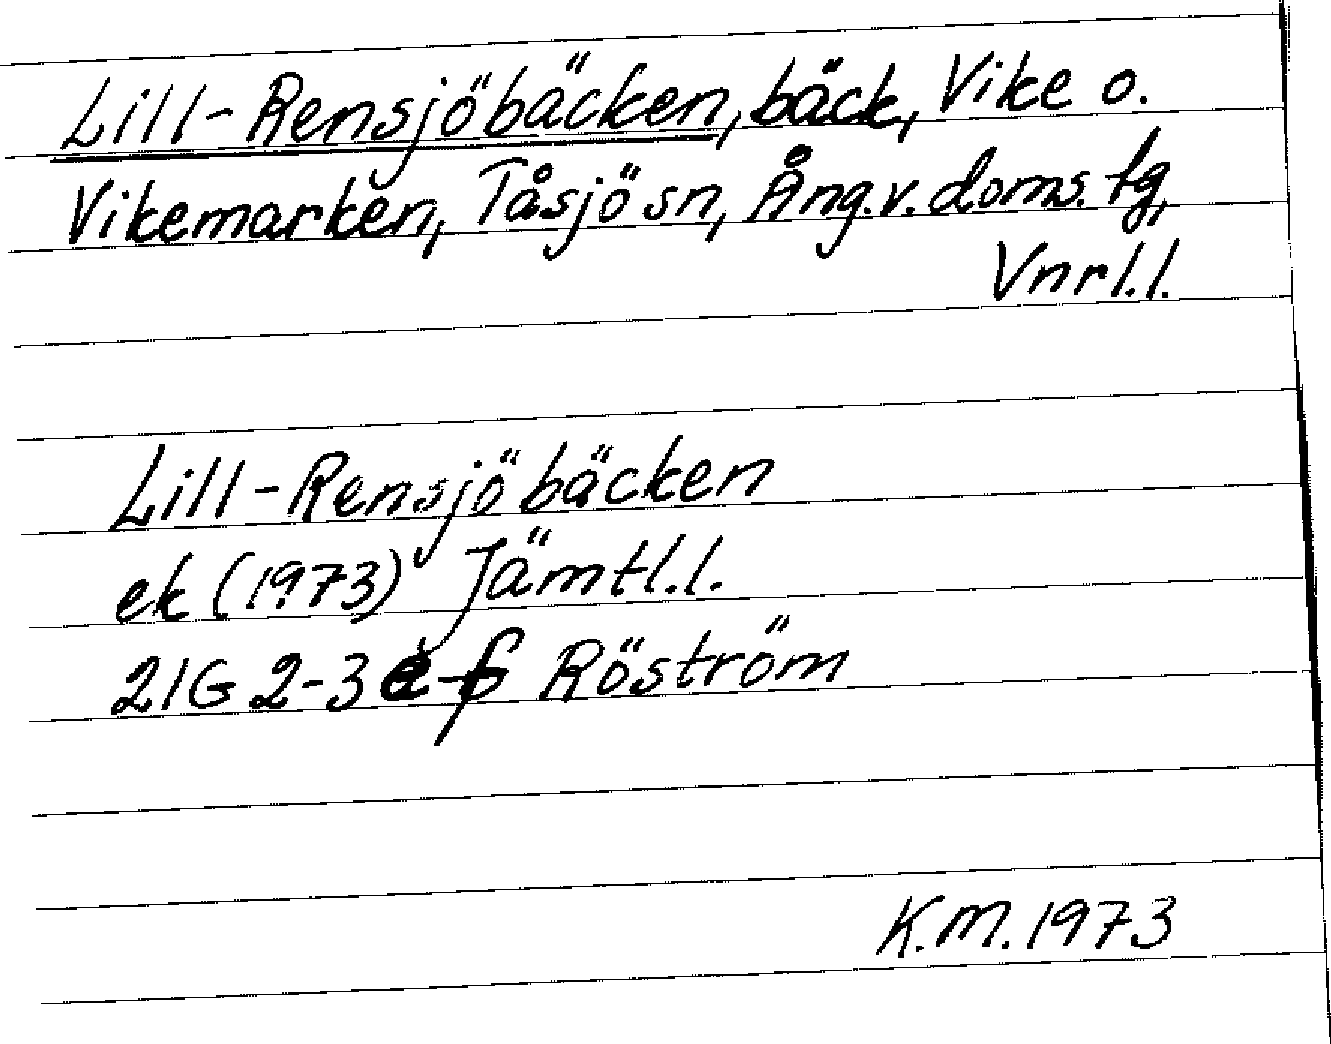 Lill-Rensjöbäcken, bäck, Vike o.
Vikemarken, Tåsjö sn, Ång.v.doms.fg,
Vnrl.l.
Lill-Rensjöbäcken
ek (1973) Jämtl.l.
21G 2-3 e-f Röström
K.M. 1973